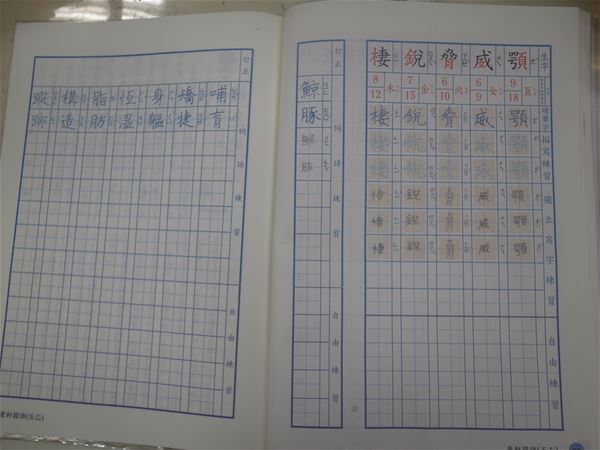 生字
硬筆字描寫練習
獨立寫字練習
自由練習
顎 9 頁 18 顎 顎 顎 顎 顎 顎
威 6 女 9 威 威 威 威 威 威
脅 6 肉 10 脅 脅 脅 脅 脅 脅
銳 7 金 15 銳 銳 銳 銳 銳 銳
棲 8 木 12 棲 棲 棲 棲 棲 棲
訂正
詞語練習
自由練習
鯨豚鯨豚
訂正
詞語練習
自由練習
哺育
矯捷
身軀
恆溫
脂肪
構造
蹤跡
康軒國語(五乙)